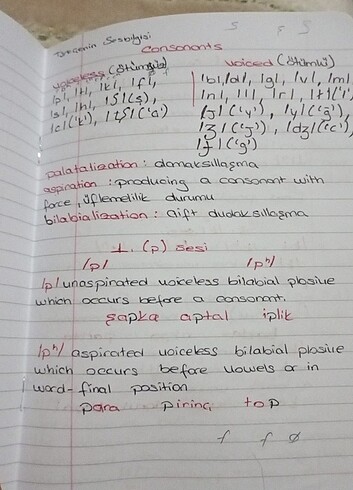 Türkçenin Sesbilgisi
Consonants
voiceless (ötümsüz)
/p/, /t/, /k/, /f/,
/s/, /h/, /ʃ/ (ş),
/c/ ('k'), /tʃ/ ('ç')
voiced (ötümlü)
/b/, /d/, /g/, /v/, /m/
/n/, /l/, /r/, /ɫ/ ('l')
/j/ ('y'), /ɣ/ ('ğ')
/ʒ/ ('j'), /dʒ/ ('c')
/ɟ/ ('g')
palatalization : damaksıllaşma
aspiration : producing a consonant with
force, üflemelilik durumu
bilabialization : çift dudaksıllaşma
1. (p) sesi
/p/ /pʰ/
/p/ unaspirated voiceless bilabial plosive
which occurs before a consonant.
şapka aptal iplik
/pʰ/ aspirated voiceless bilabial plosive
which occurs before vowels or in
word-final position
para pirinç top